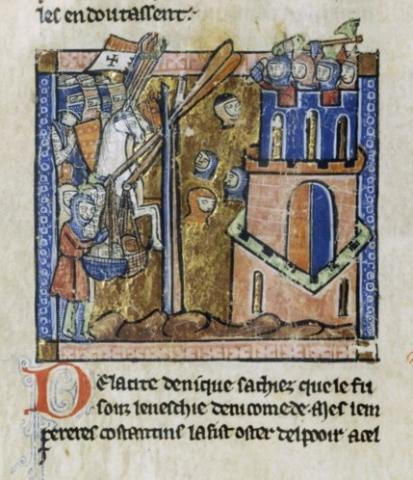 les endoutassent:
De la cite de nique sachiez que le fu
souz leveschie de nicomede. Mes lem
pereres costantins la fist oster del pooir a cel